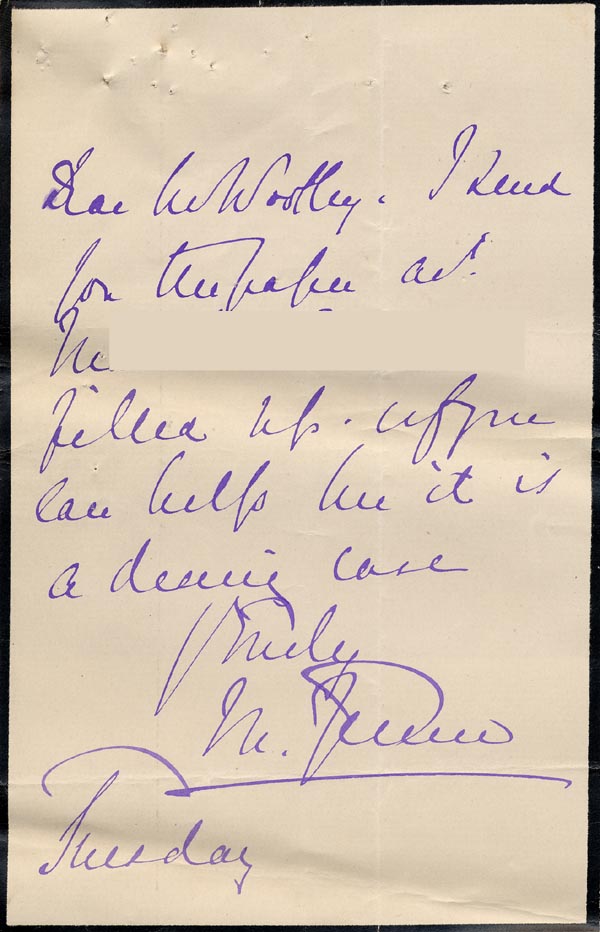 Dear Mr Woolley. I send
you the paper abt
M
filled up. if you
can help her it is
a deserving case
Yrs truly
M.
Tuesday